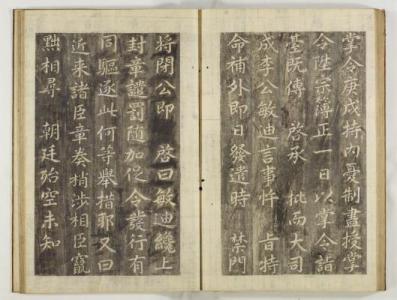 掌令庚戌持內憂制畫授掌
令陞宗簿正一日以掌令詣
臺旣傳 啓承 批而大司
成李公敏迪言事忤 旨特
命補外卽日發遣時 禁門
將閉公卽 啓曰敏迪纔上
封章譴罰隨加促令發行有
同驅逐此何等擧措耶又曰
近来諸臣章奏稍涉相臣竄
黜相尋 朝廷殆空未知